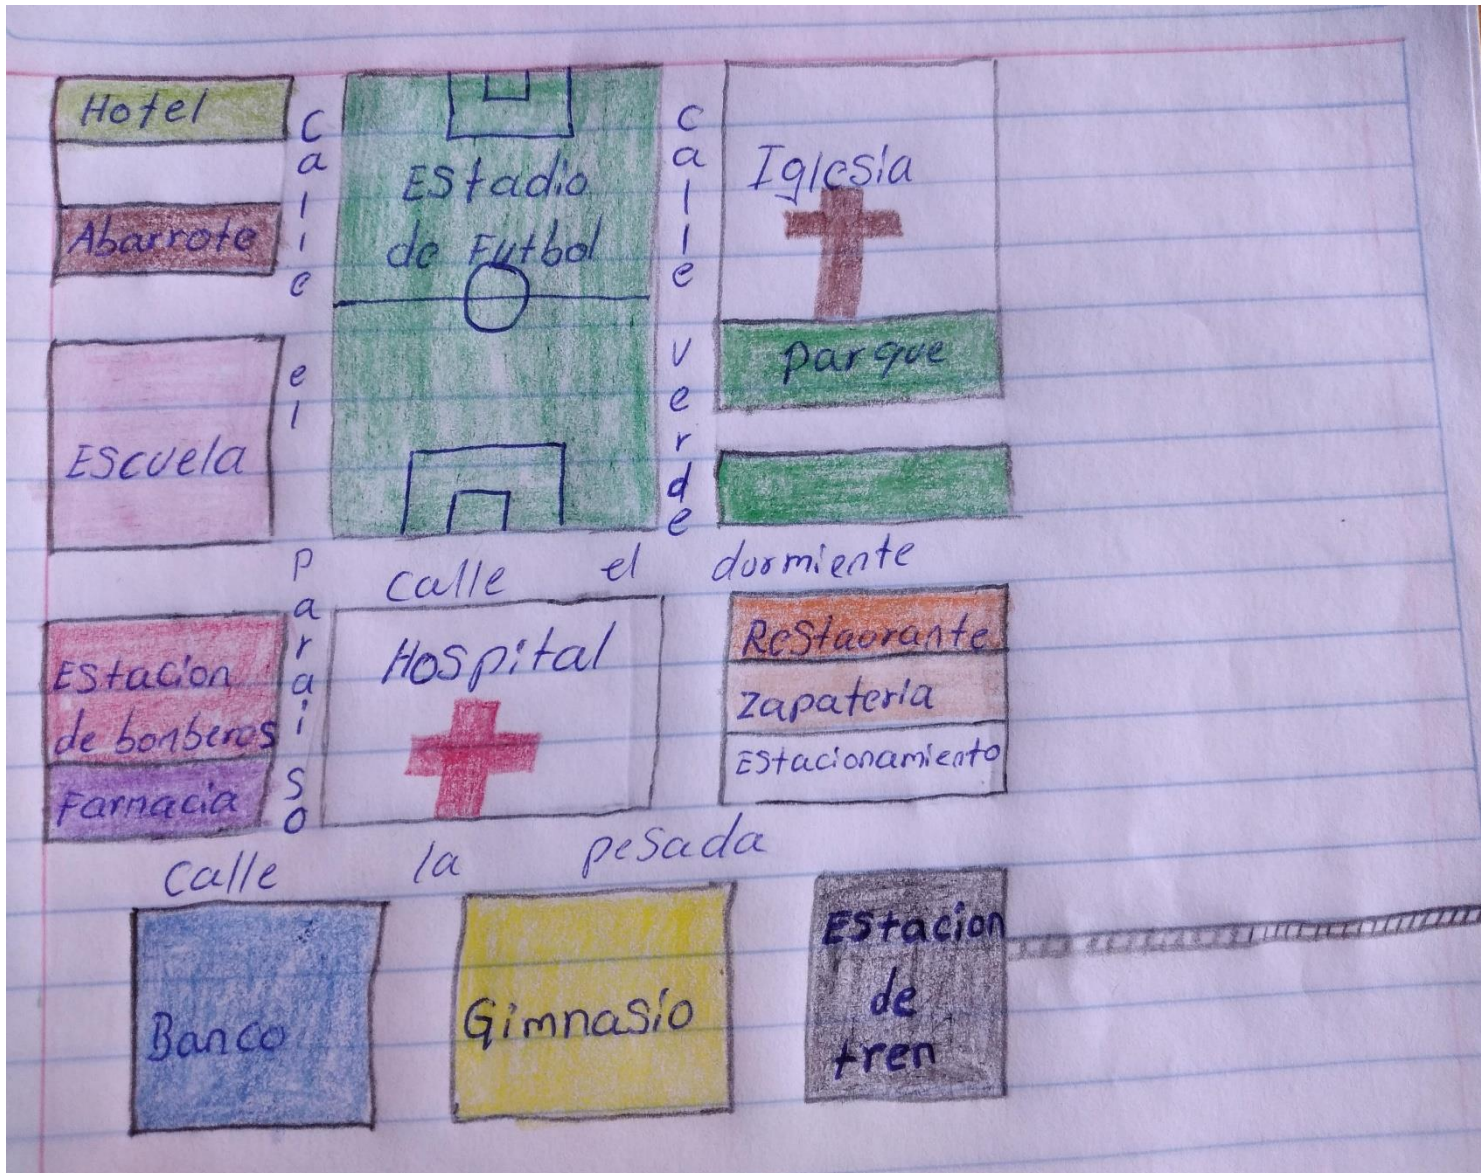 Hotel
Abarrote
Escuela
Calle el Paraiso
Estadio
de Futbol
Calle Verde
Iglesia
parque
calle el dormiente
Estacion
de bonberos
Farmacia
Hospital
Restaorante
Zapateria
Estacionamiento
Calle la pesada
Banco
Gimnasio
Estacion
de
tren